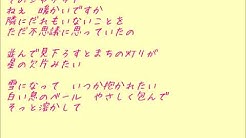 ねぇ　暖かいですか
隣にだれもいないことを
ただ不思議に思っていた
並んで見下ろすとまちの灯りが
星の欠片みたい
雪になって　いつか抱かれたい
白い息のベール　やさしく包んで
そっと溶かして